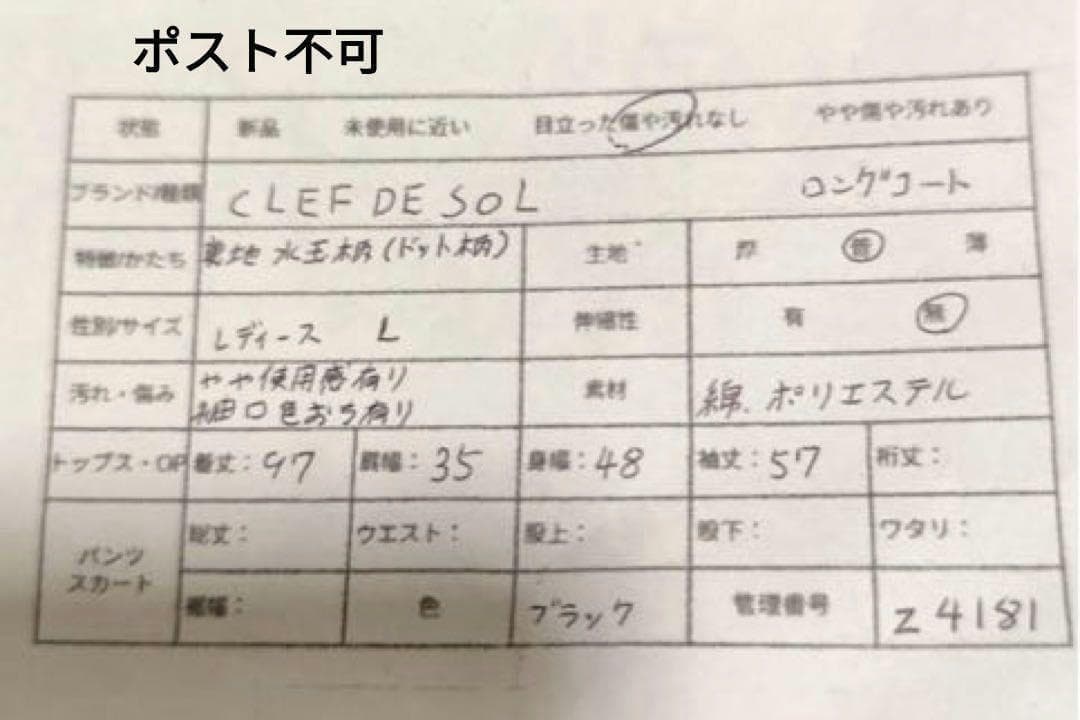 ポスト不可
状態 新品 未使用に近い 目立った傷や汚れなし やや傷や汚れあり
ブランド/種類 CLEF DE SOL ロングコート
特徴/かたち 裏地 水玉柄(ドット柄) 生地 厚 普 薄
性別/サイズ レディース L 伸縮性 有 無
汚れ・傷み やや使用感有り
袖口色おち有り
素材 綿、ポリエステル
トップス・OP 着丈:97 肩幅:35 身幅:48 袖丈:57 裄丈:
パンツ
スカート
総丈: ウエスト: 股上: 股下: ワタリ:
裾幅: 色 ブラック 管理番号 Z4181